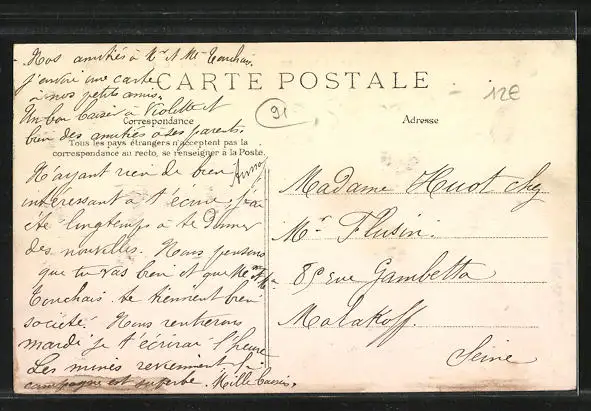 Nos amitiés à Mr et Me Touchais.
J'envoie une carte
à nos petits amis.
Un bon baiser à Violette et
bien des amitiés à ses parents.
CARTE POSTALE
91
12E
Correspondance
Adresse
Tous les pays étrangers n'acceptent pas la
correspondance au recto, se renseigner à la Poste.
N'ayant rien de bien
intéressant à t'écrire, j'ai
été longtemps à te donner
des nouvelles. Nous pensons
que tu vas bien et que Mr et Me
Touchais te tiennent bien
société. Nous rentrerons
mardi je t'écrirai l'heure
Les mines reviennent la
campagne est superbe. Mille baisers.
Madame Huot chez
Mr Flusin.
85 rue Gambetta
Malakoff.
Seine